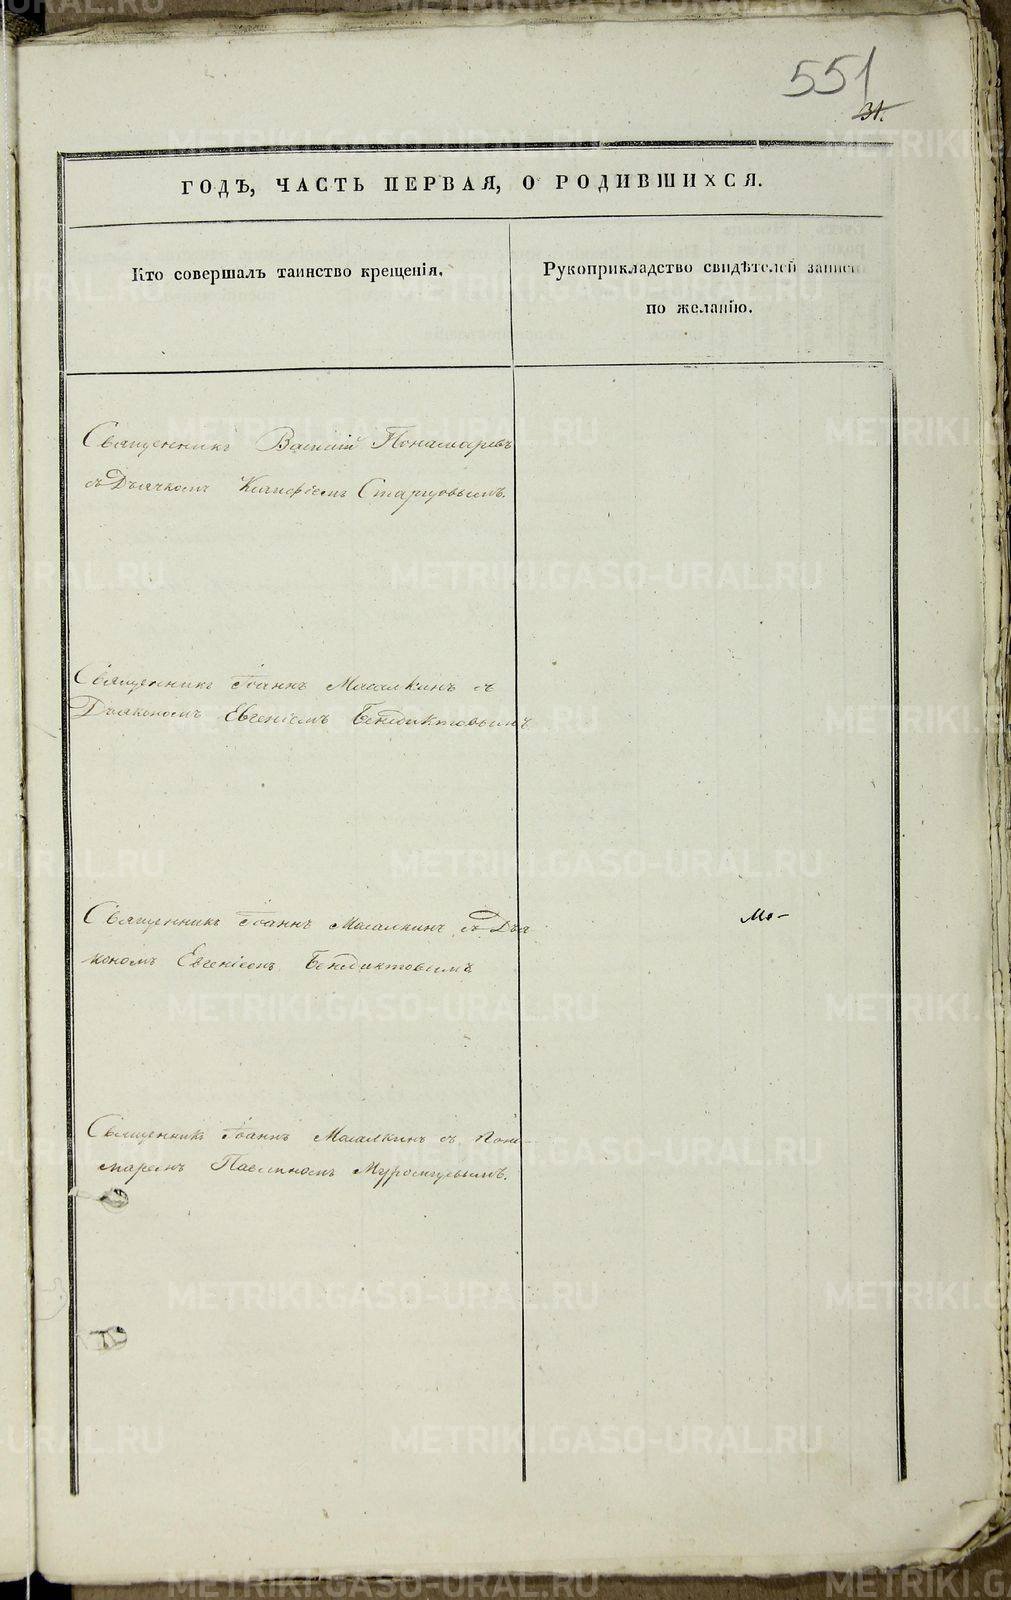 551
31.
ГОДЪ, ЧАСТЬ ПЕРВАЯ, О РОДИВШИХСЯ.
Кто совершалъ таинство крещенія.
Рукоприкладство свидѣтелей записи
по желанію.
Священникъ Василій Понамаревъ
съ Дьячкомъ Старцовымъ.
Священникъ Іоаннъ Масалкинъ съ
Дьякономъ Евгеніемъ Бенедиктовымъ
Священникъ Іоаннъ Масалкинъ съ Дья
кономъ Евгеніемъ Бенедиктовымъ
Мо-
Священникъ Іоаннъ Масалкинъ съ Поно-
маремъ Муромцевымъ.
METRIKI.GASO-URAL.RU